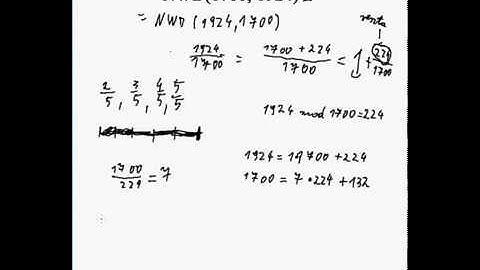 = NWD (1924, 1700)
reszta
1924/1700 = 1700 + 224/1700 < 1 + 224/1700
2/5, 3/5, 4/5, 5/5
1924 mod 1700 = 224
1924 = 1·1700 + 224
1700/224 = 7
1700 = 7 • 224 + 132